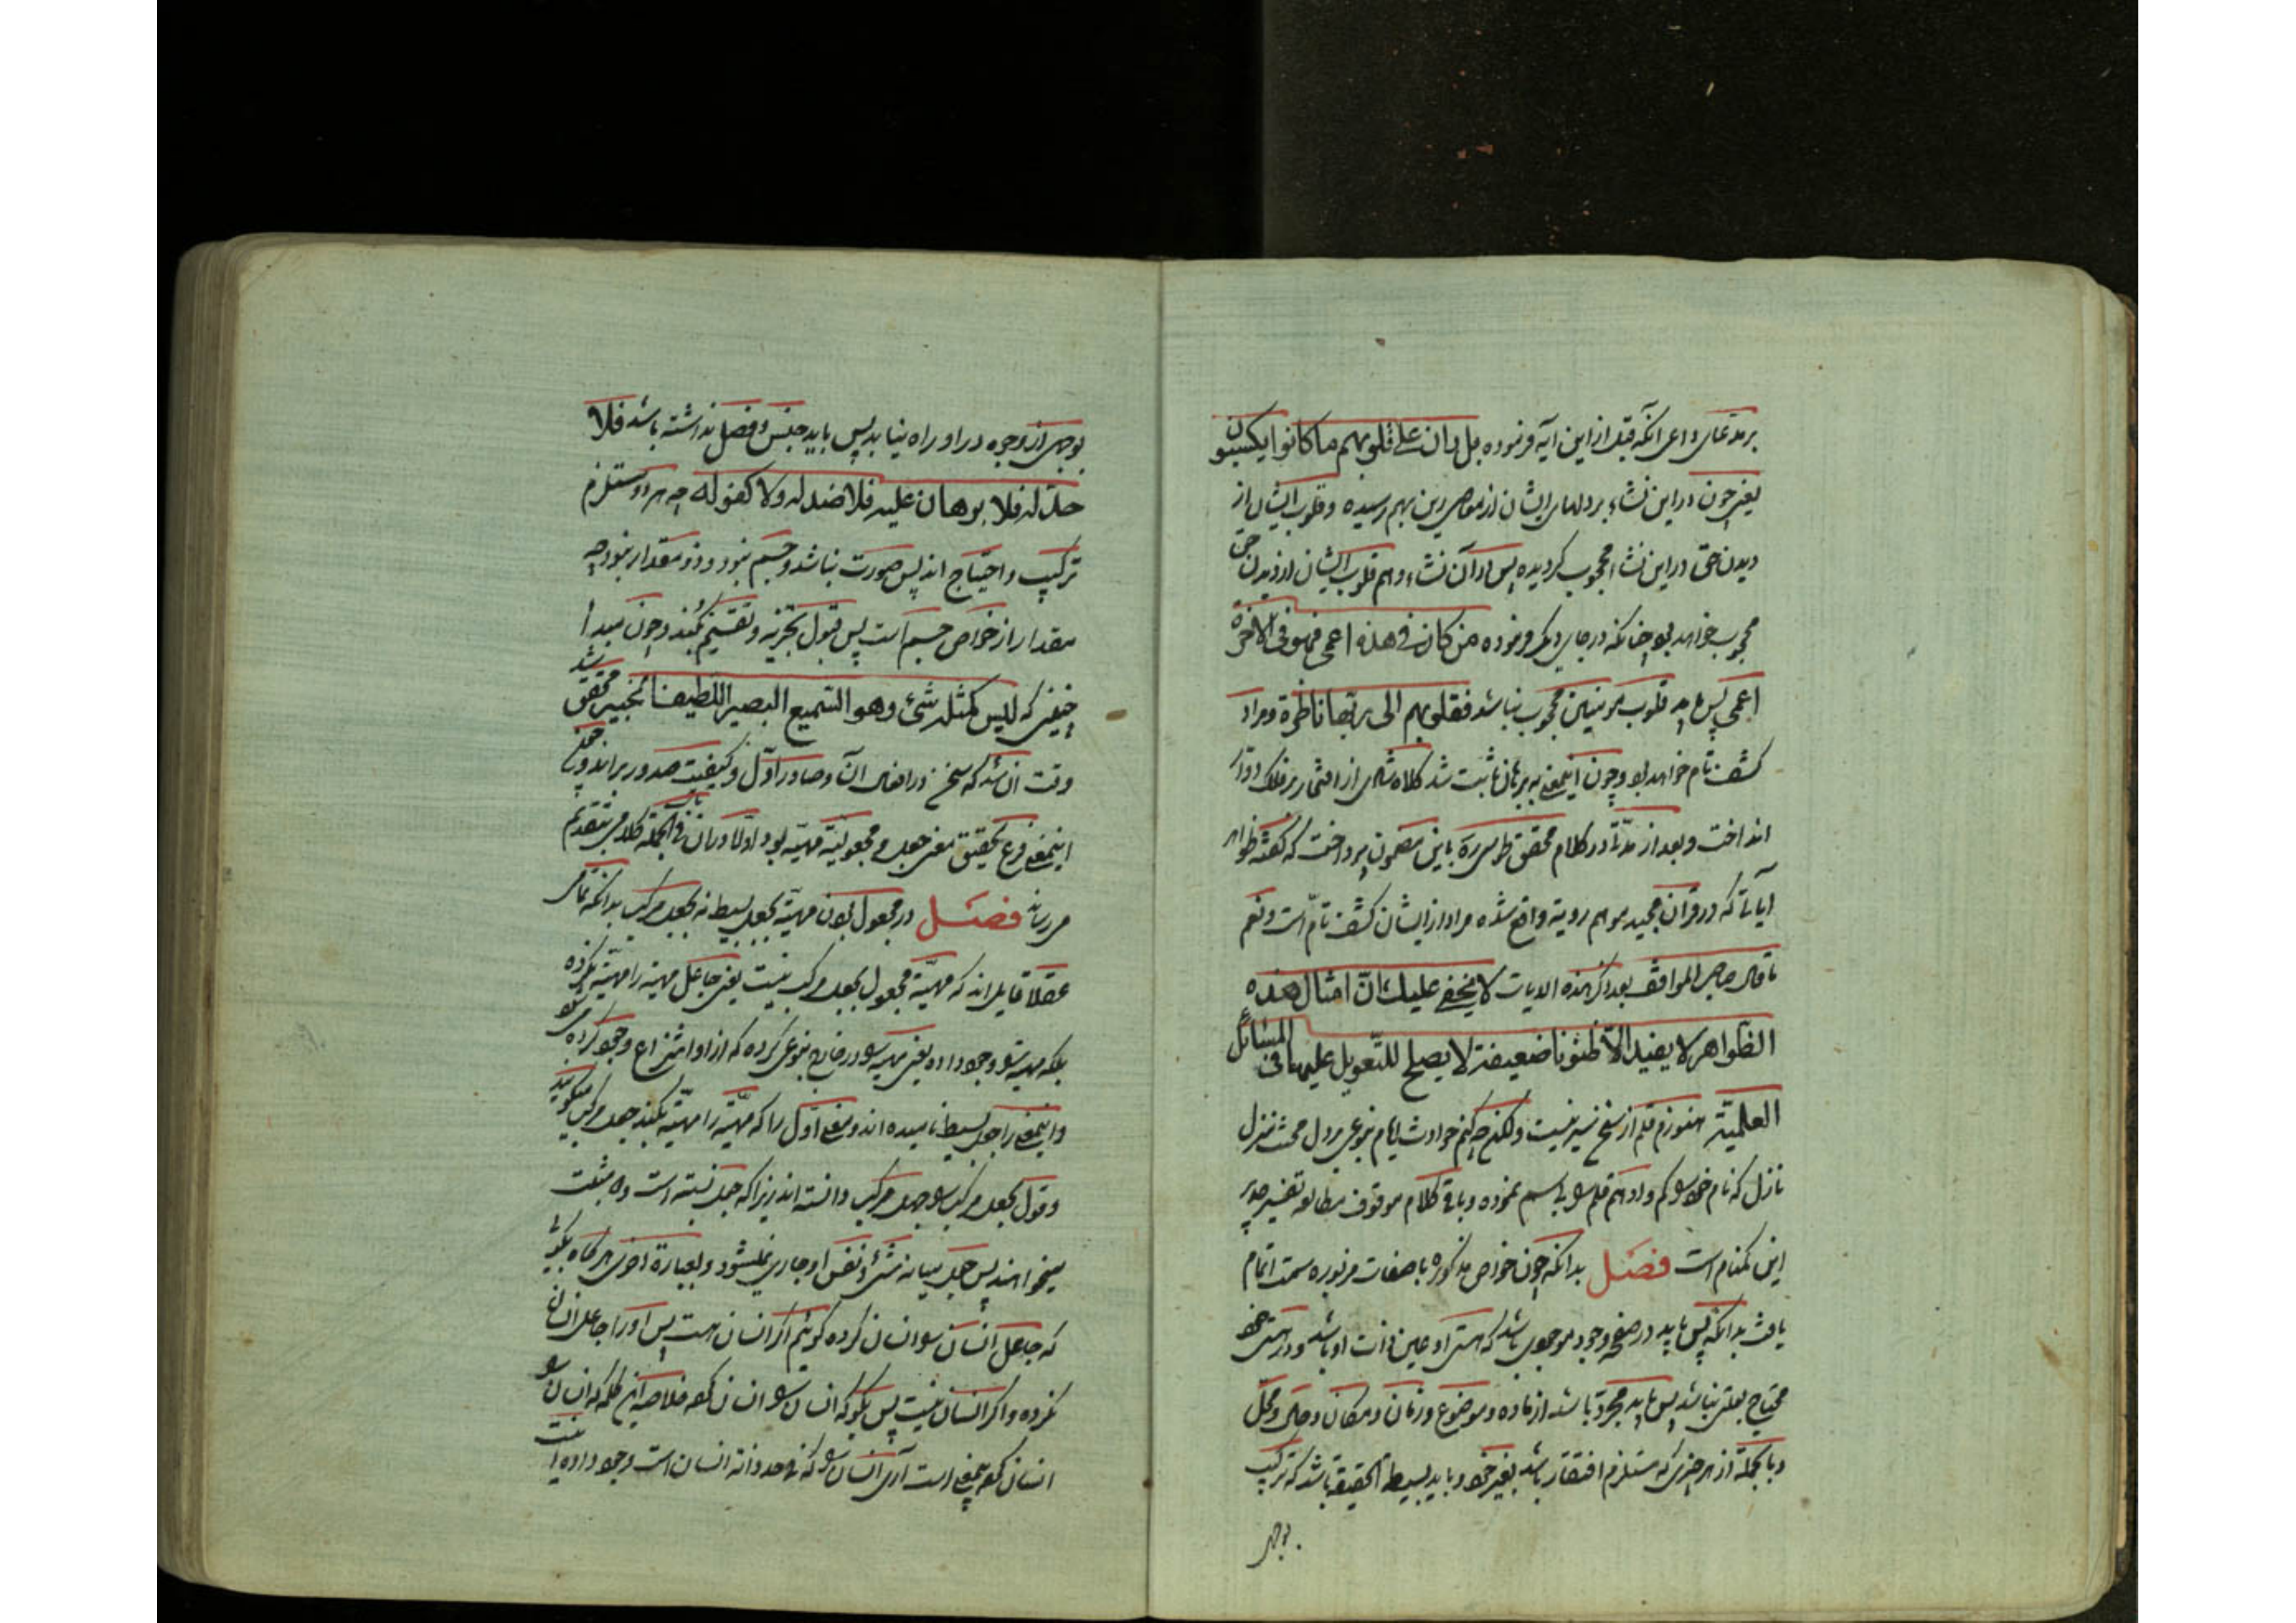 برمدعای داعی آنکه قبل از این آیه فرموده بل ران علی قلوبهم ما کانوا یکسبون
یعنی چون در این نشاء بر دلهای ایشان از معاصی رین بهم رسیده و قلوب ایشان از
دیدن حق در این نشاء محجوب کردیده پس در آن نشاء هم قلوب ایشان از دیدن حق
محجوب خواهد بود چنانکه در جای دیگر فرموده من کان فی هذه اعمی فهو فی الاخرة
اعمی پس باید قلوب مؤمنین محجوب نباشد فقلوبهم الی ربها ناظرة و مراد
کشف تام خواهد بود و چون اینمعنی به برهان ثابت شد کلاه شادی از افتخار بر فلک دوار
انداخت و بعد از مدتی در کلام محقق طوسی ره باین مضمون برداخت که گفته ظواهر
آیاتی که در قران مجید موهم رویة واقع شده مراد از ایشان کشف تام است و نعم
ما قال صاحب المواقف بعد ذکر هذه الایات لا یخفی علیک ان امثال هذه
الظواهر لا یفید الا ظنونا ضعیفة لا یصلح للتعویل علیها فی المسائل
العلمیة هنوزم قلم از نسخ سیر نیست ولکن چکنم حوادث ایام بنوعی بر دل محنت منزل
نازل که نام خود کم و او هم قلم بی اسم نموده و باقی کلام موقوف مطالعه تفسیر صدیر
این کمنام است فصل بدانکه چون خواص مذکوره با صفات مزبوره سمت اتمام
یافت بدانکه پس باید در صفحه وجود موجودی باشد که هستی او عین ذات او باشد و در هستی خود
محتاج بعلتی نباشد پس باید مجرد باشد از ماده و موضوع و زمان و مکان و حال و محل
و بالجمله از هر چیزی که مستلزم افتقار باشد بغیر خود و باید بسیط الحقیقة باشد که ترکیب
بوجهی
بوجهی از وجوه در او راه نیابد پس باید جنس و فصل نداشته باشد فلا
حد له فلا برهان علیه فلا ضد له ولا کفو له چه هر دو مستلزم
ترکیب و احتیاج اند پس صورت نباشد و جسم نبود و ذو مقدار نبود چه
مقدار از خواص جسم است پس قبول تجزیه و تقسیم نکند و چون مبدا
چنینی که لیس کمثله شیء و هو السمیع البصیر اللطیف الخبیر محقق شد
وقت ان شد که سخن در افعال آن و صادر اول و کیفیت صدور براند و چون
اینمعنی فرع تحقیق معنی جعل و مجعولیة مهیة بود اولا در ان باب فی الجمله کلامی بتقدیم
می رساند فصل در مجعول بودن مهیة بجعل بسیط نه بجعل مرکب بدانکه تمامی
عقلا قایل اند که مهیة مجعول بجعل مرکب نیست یعنی جاعل مهیة را مهیة نکرده
بلکه مهیة را وجود داده یعنی مهیة را در خارج بنوعی کرده که از او انتزاع وجود کرده می شود
و اینمعنی را جعل بسیط نامیده اند و معنی اول را که مهیة را مهیة بکند جعل مرکب میگویند
و قول بجعل مرکب را جهل مرکب دانسته اند زیرا که جعل نسبته است و طرفین
میخواهند پس جعل میانه شیء و نفس او جاری نمیشود و بعبارة اخری هرگاه بگوئی
که جاعل انسان را انسان کرده گوئیم اگر انسان هست پس او را جاعل انسان
نکرده و اگر انسان نیست پس بگو که انسان را انسان کرد خلاصه این کلمه که انسان را
انسان کرد بیمعنی است آری انسان را که فی حد ذاته انسان است وجود داده است